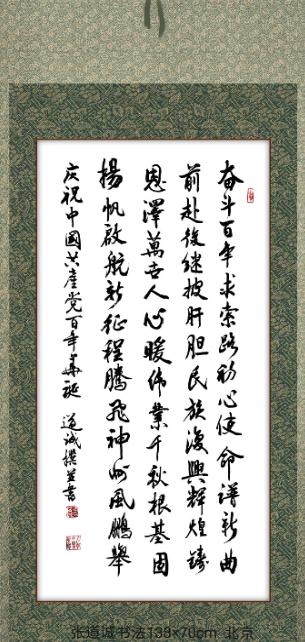 奋斗百年求索路初心使命譜新曲
前赴後继披肝胆民族復興輝煌鑄
恩澤萬世人心暖伟業千秋根基固
揚帆啟航新征程騰飛神州風鵬舉
庆祝中國共產党百年華诞 道诚撰并書
张道诚书法138×70cm 北京